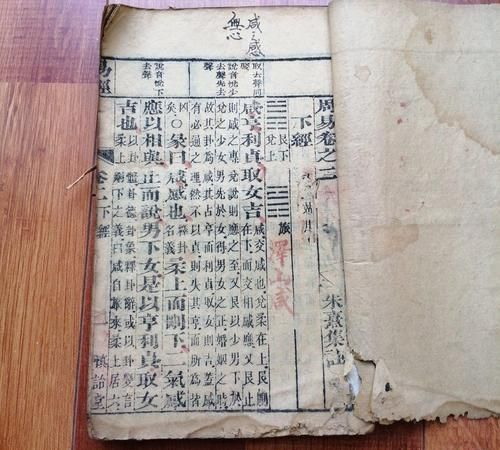 咸之感
無心
周易卷之二
朱熹集註
下經
艮下
兌上
咸亨利貞取女吉
咸交感也兌柔在上艮剛
在下而交相感應又艮止
則感之專兌說則應之至又艮以少男下於
兌之少女男先於女得男女之正婚姻之時
故其卦為咸其占亨而利貞取女則吉蓋感
有必通之理然不以貞則失其亨而所為皆
凶矣
彖曰咸感也
釋卦名義
柔上而剛下二氣感
應以相與止而說男下女是以亨利貞取女
吉也
以卦體卦德卦象釋卦辭或以卦變言
柔上剛下之義曰咸自旅來柔上居六
取去聲
說音悅少
去聲先去
聲
說音悅下
去聲
澤山咸
旅
易經
卷二
下經
慎詒堂